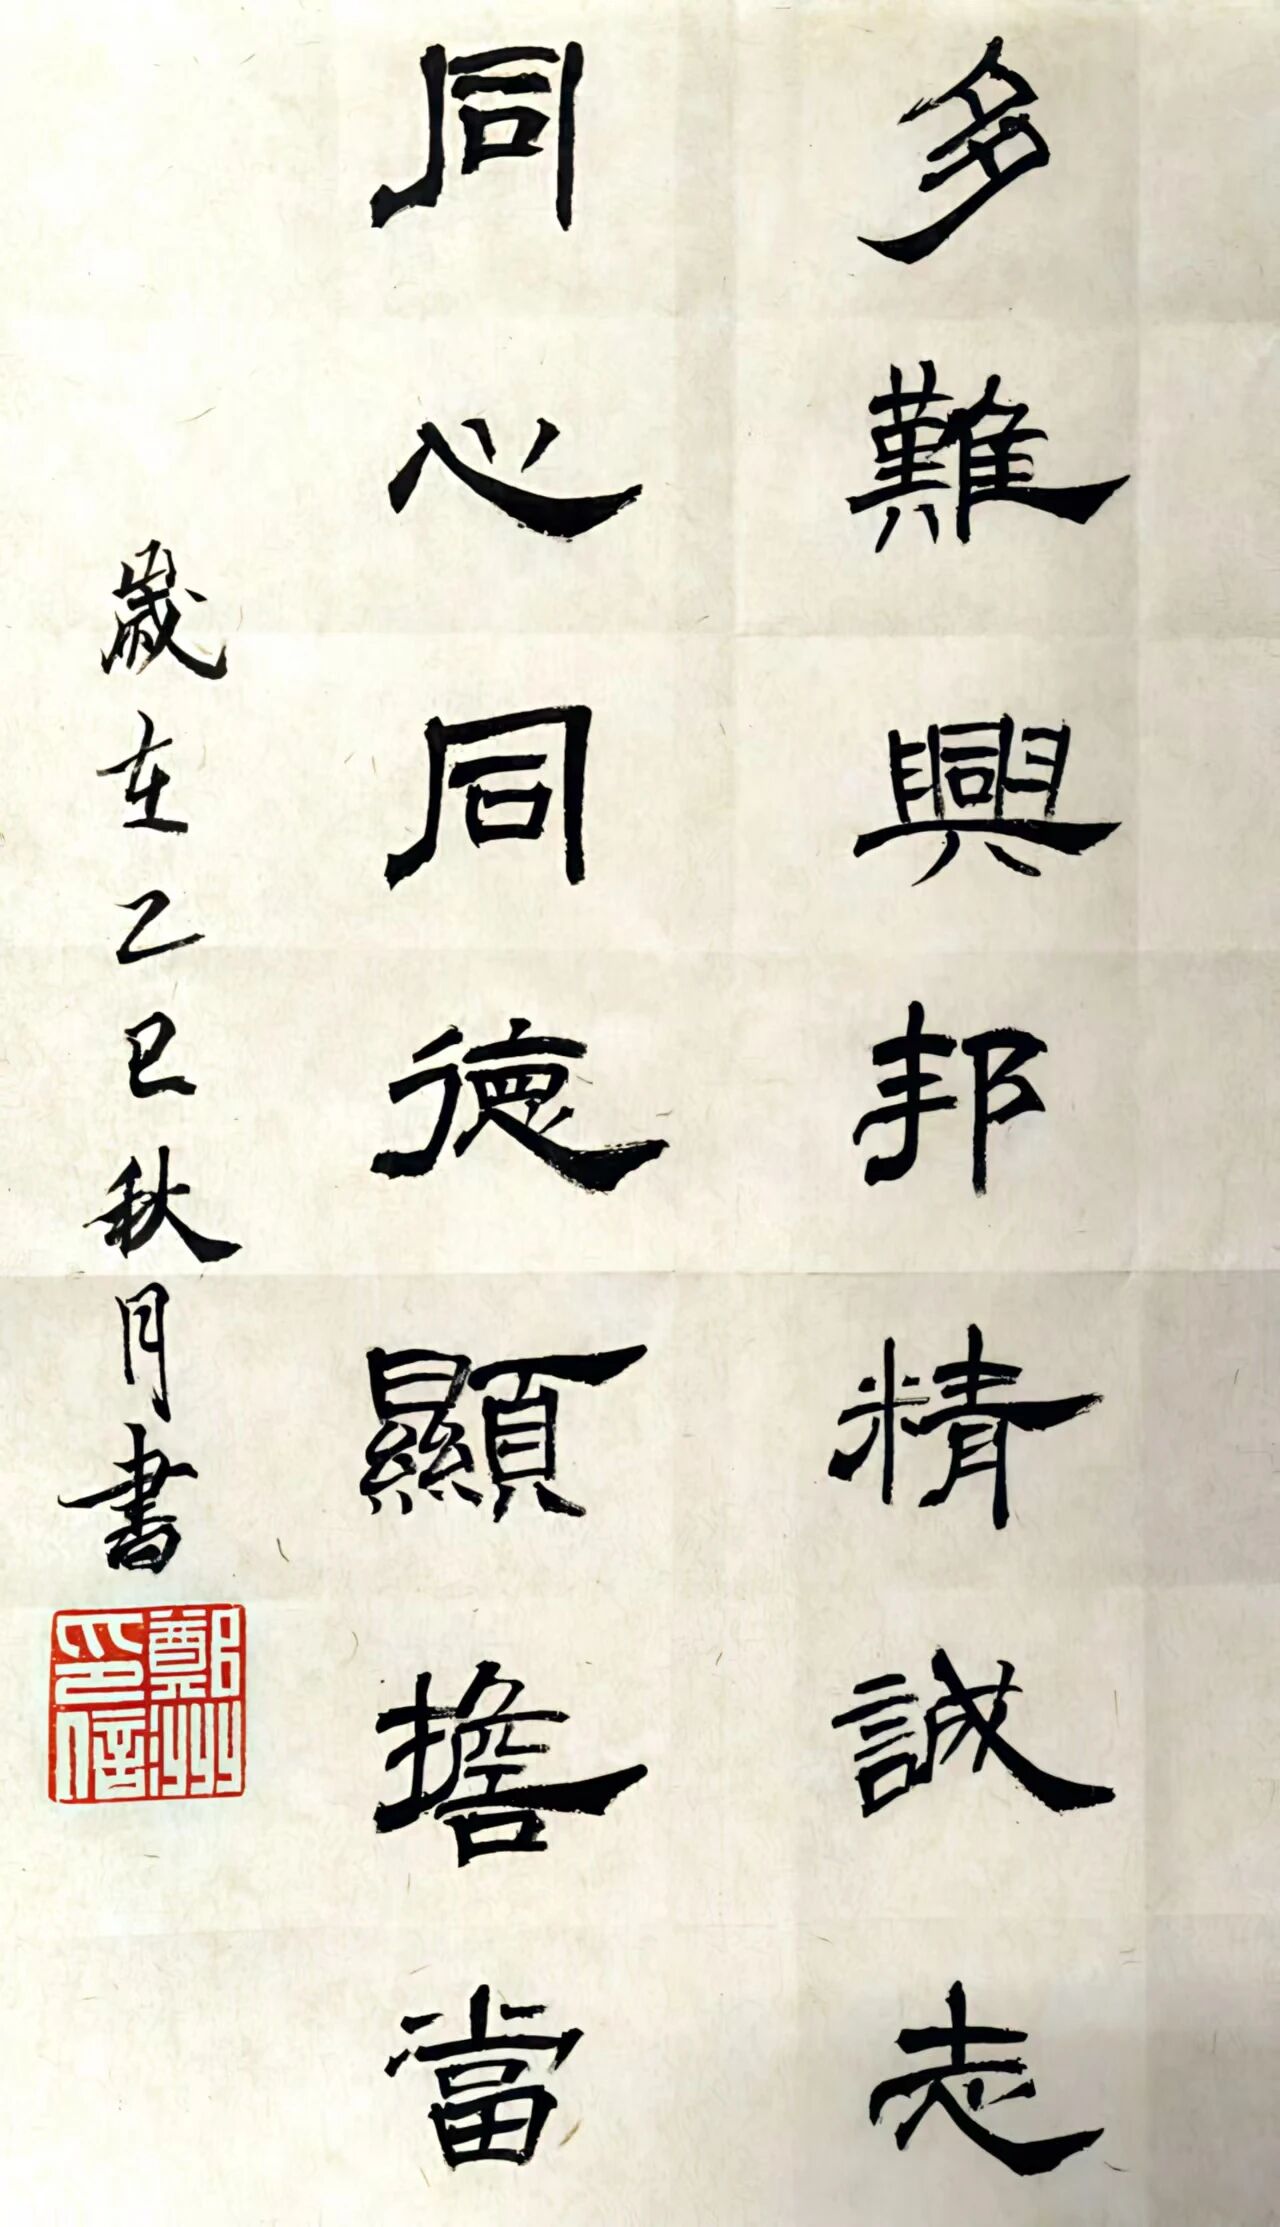 多難興邦精誠志
同心同德顯擔當
歲在乙巳秋月書
鄭州信印